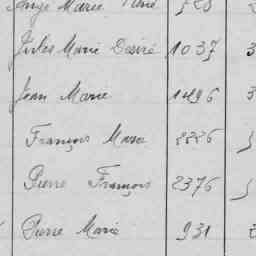 Ange Marie René 528
Jules Marie Désiré 1037 3
Jean Marie 1496 3
François Marie 2226
Pierre François 2376
Pierre Marie 931